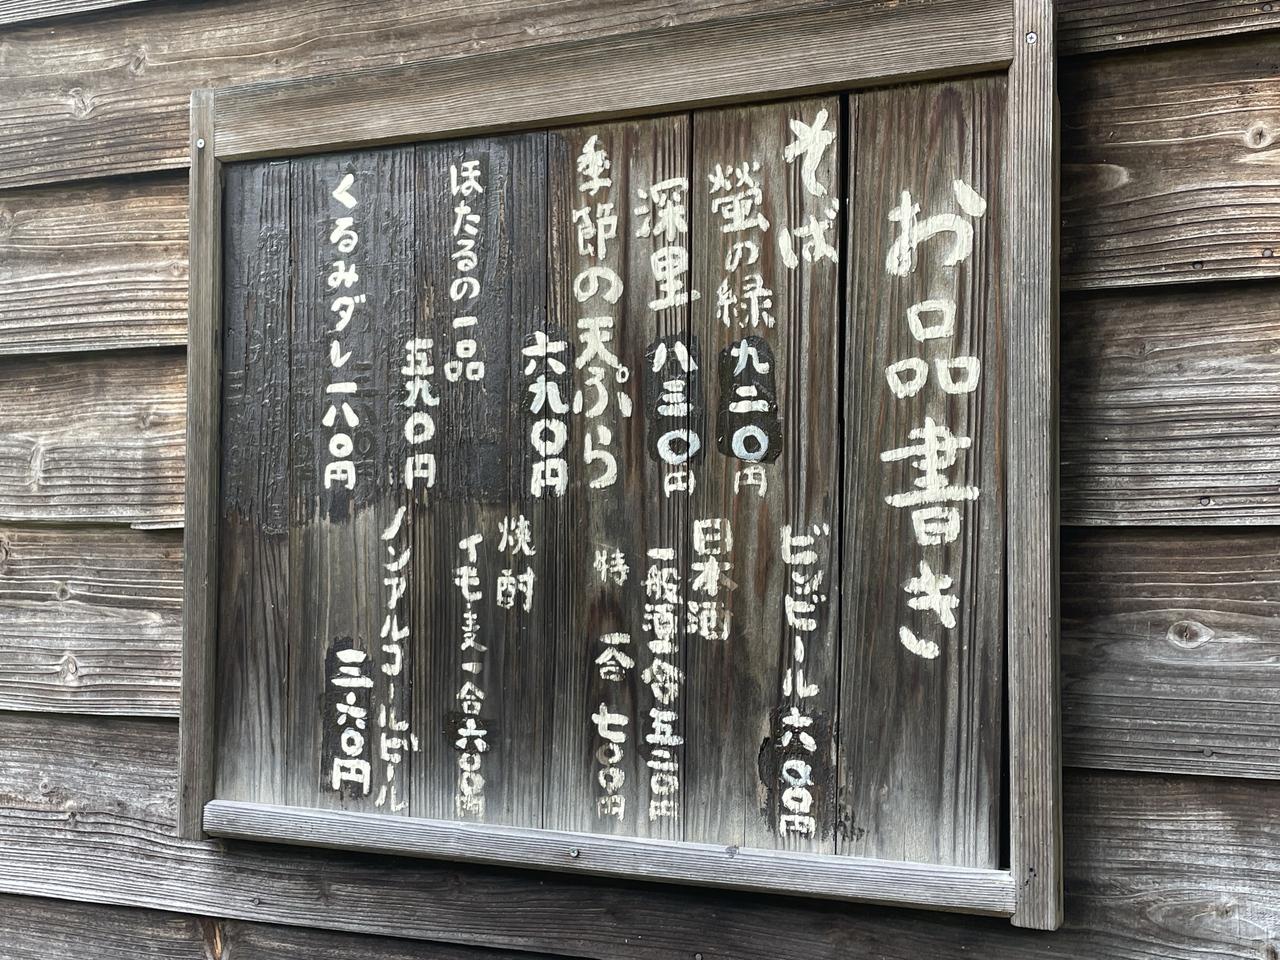 お品書き
そば
螢の緑 九二〇円
深里 八三〇円
季節の天ぷら
六九〇円
ほたるの一品
五九〇円
くるみダレ 一八〇円
ビンビール 六〇〇円
日本酒
一般酒 一合 五二〇円
特 一合 七〇〇円
焼酎
イモ・麦 一合 六〇〇円
ノンアルコールビール
三六〇円